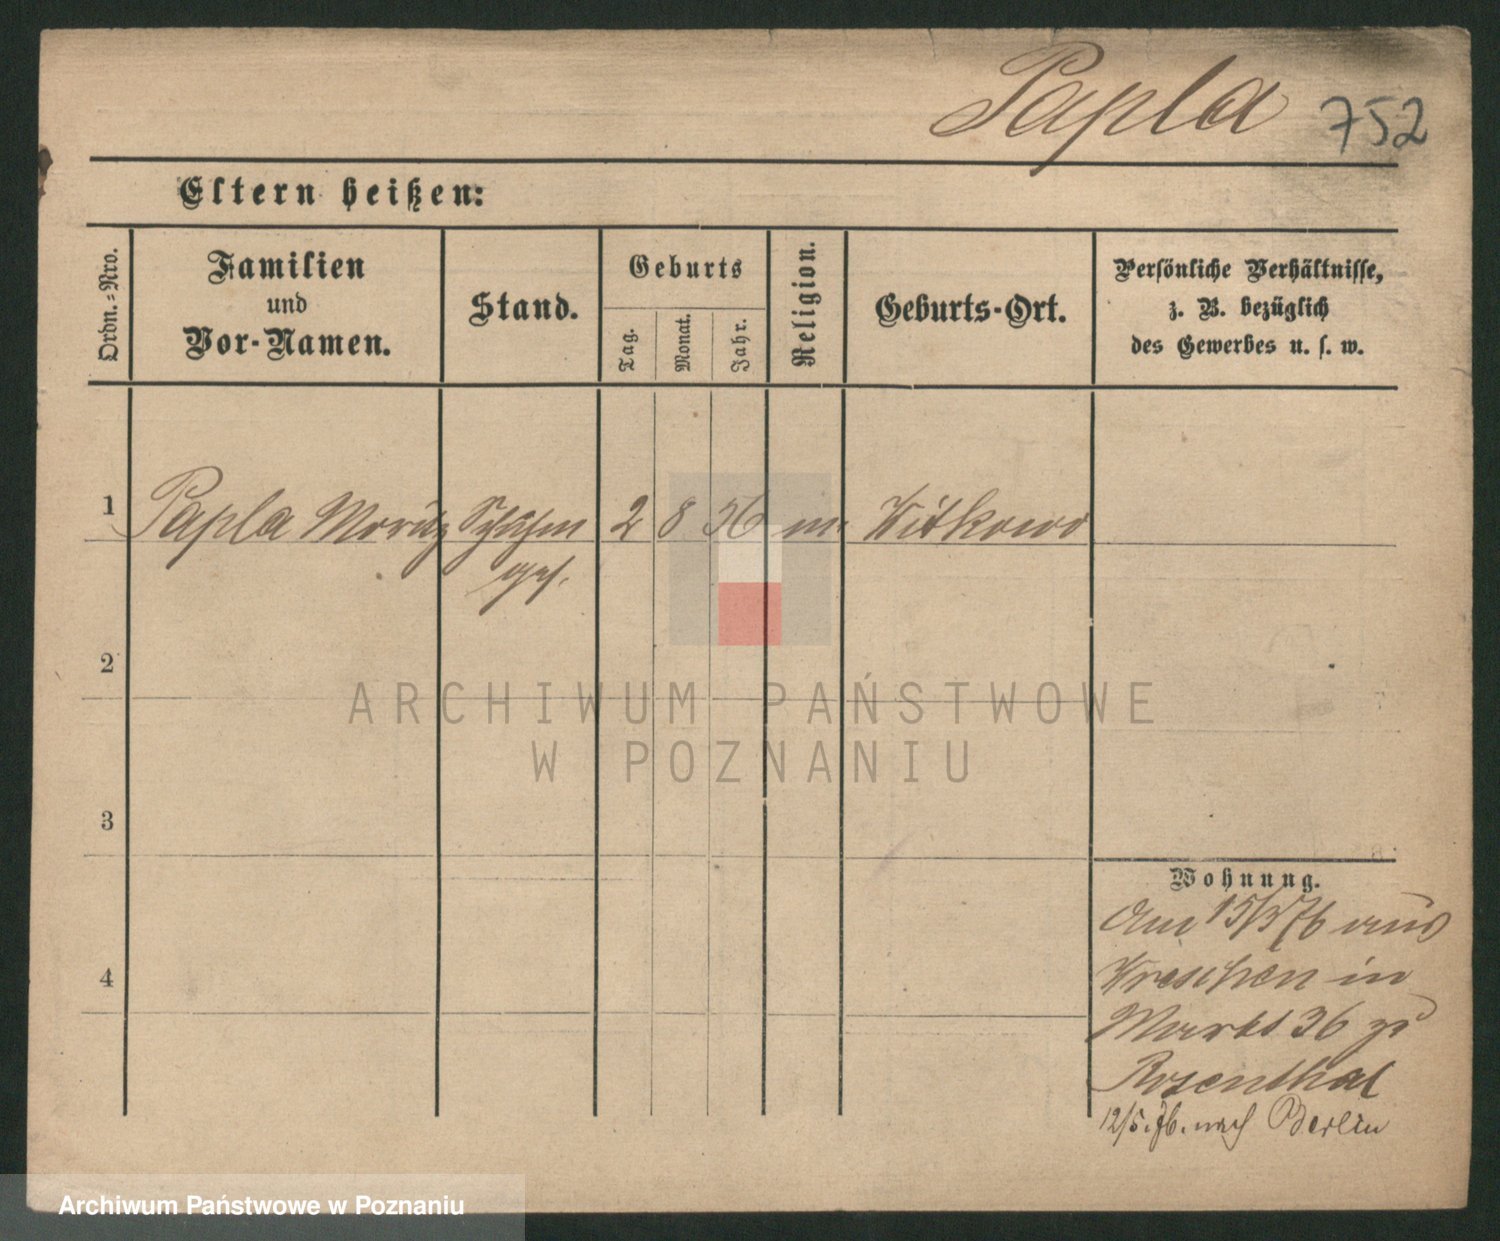 Papla 752
Eltern heißen:
Ordn.-Nro.
Familien
und
Vor-Namen.
Stand.
Geburts
Tag.
Monat.
Jahr.
Religion.
Geburts-Ort.
Persönliche Verhältnisse,
z. B. bezüglich
des Gewerbes u. s. w.
1 Papla Moritz 2 8 56 m. Witkowo
2
3
4
Wohnung.
Am 15/3 76 aus
Wreschen in
Markt 36 zu
Rosenthal
12/5. 76. nach Berlin
ARCHIWUM PAŃSTWOWE
W POZNANIU
Archiwum Państwowe w Poznaniu